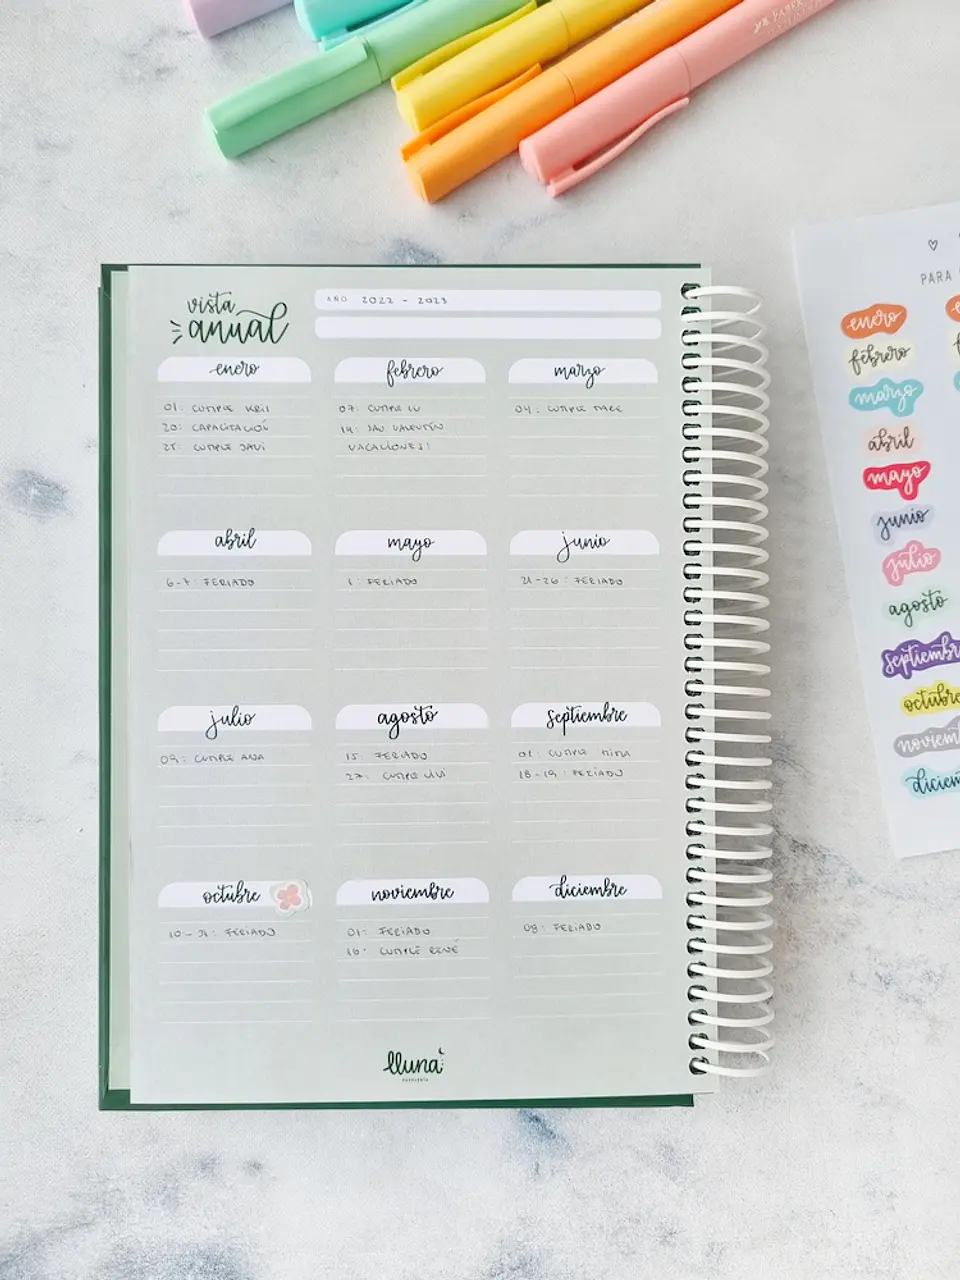 vista
anual
AÑO 2022 - 2023
enero
01: CUMPLE KRIS
20: CAPACITACIÓN
25: CUMPLE JAVI
febrero
07: CUMPLE LU
14: SAN VALENTÍN
VACACIONES!
marzo
04: CUMPLE
abril
6-7: FERIADO
mayo
1: FERIADO
junio
21-26: FERIADO
julio
09: CUMPLE ANA
agosto
15: FERIADO
27: CUMPLE
septiembre
01: CUMPLE NINA
18-19: FERIADO
octubre
10-31: FERIADO
noviembre
01: FERIADO
16: CUMPLE RENÉ
diciembre
08: FERIADO
lluna
PAPELERÍA
PARA
enero
febrero
marzo
abril
mayo
junio
julio
agosto
septiembre
octubre
noviem
diciem
FABER